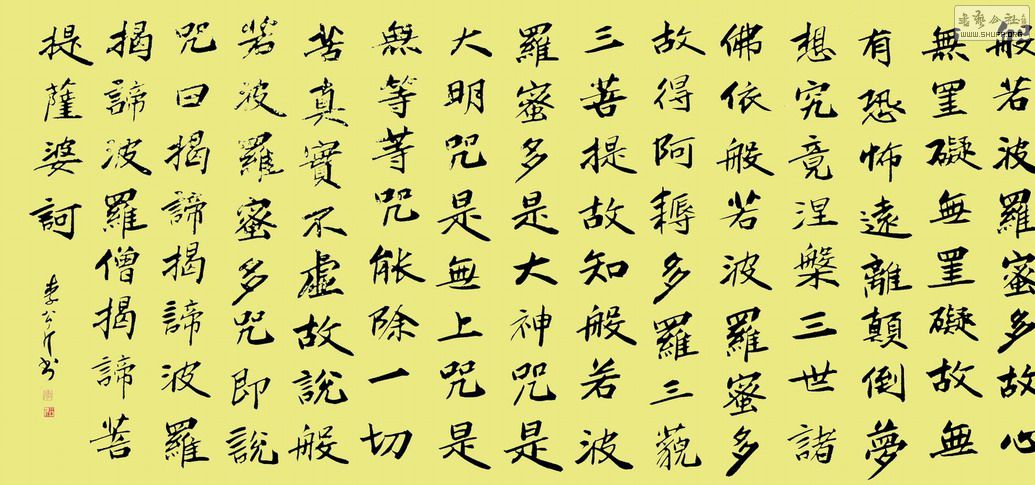 般若波羅蜜多故心
無罣礙無罣礙故無
有恐怖遠離顛倒夢
想究竟涅槃三世諸
佛依般若波羅蜜多
故得阿耨多羅三藐
三菩提故知般若波
羅蜜多是大神咒是
大明咒是無上咒是
無等等咒能除一切
苦真實不虛故說般
若波羅蜜多咒即說
咒曰揭諦揭諦波羅
揭諦波羅僧揭諦菩
提薩婆訶
李公书
WWW.SHUFA.ORG